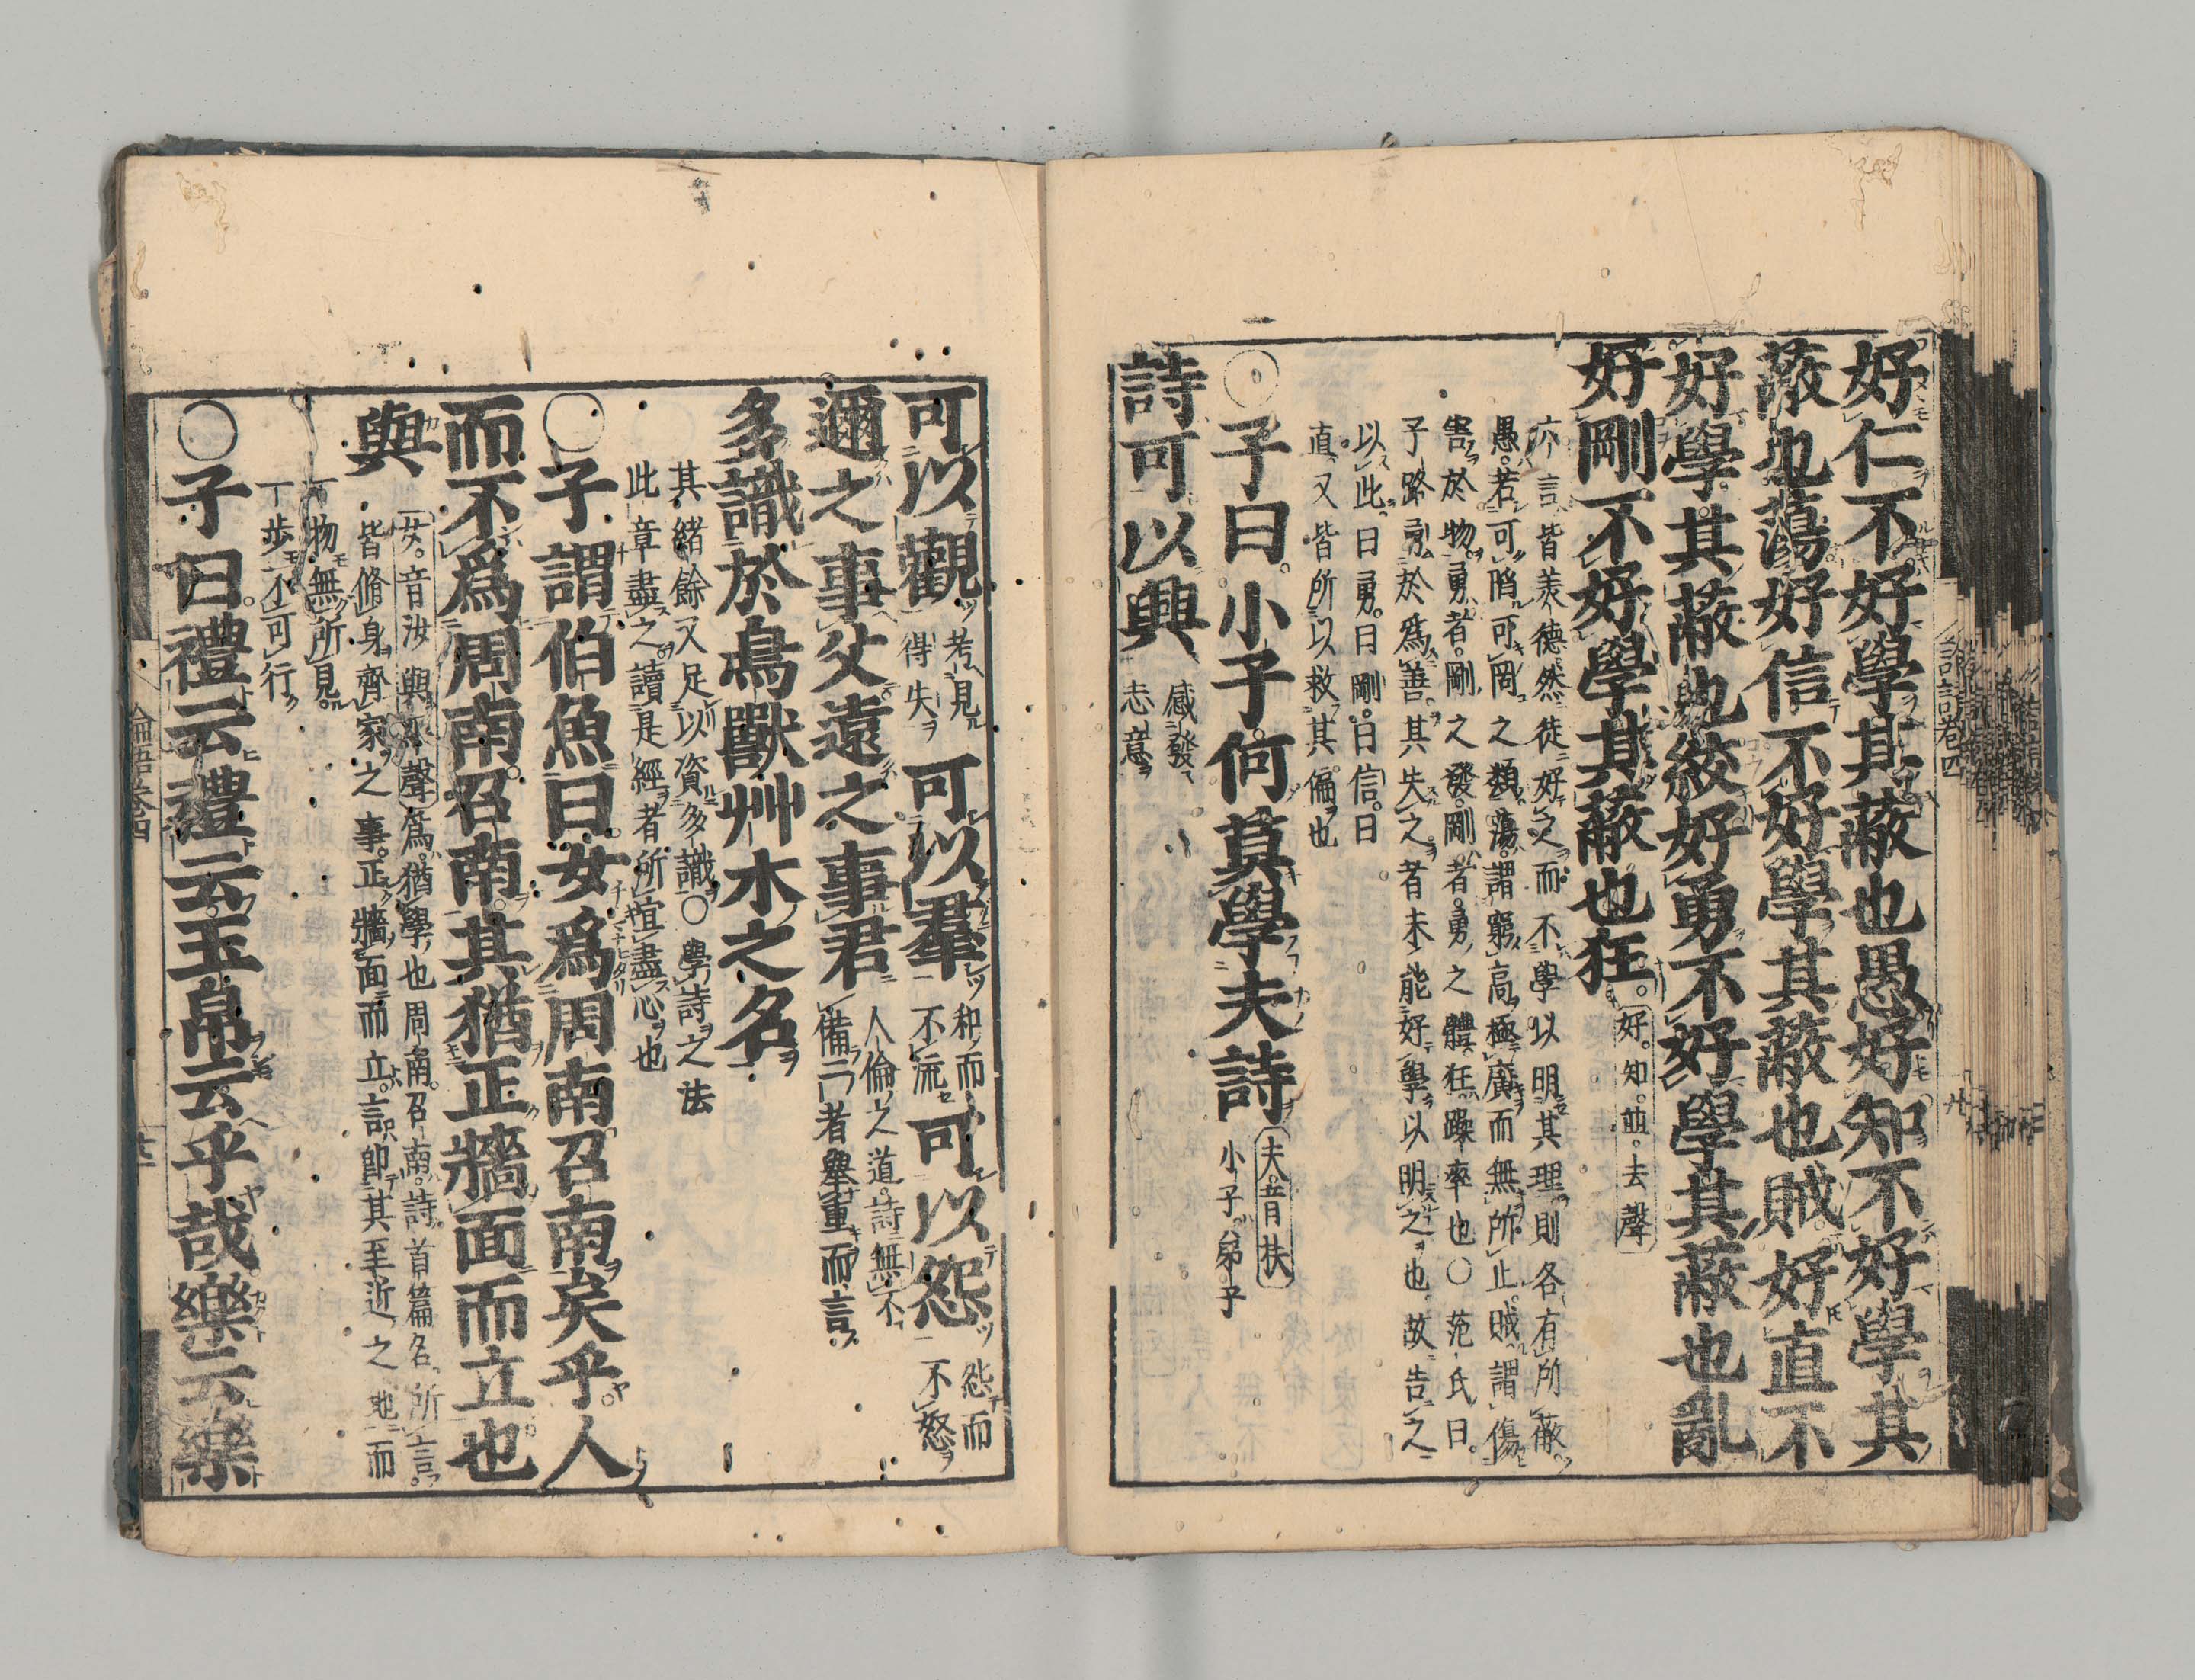 好仁不好學其蔽也愚好知不好學其
蔽也蕩好信不好學其蔽也賊好直不
好學其蔽也絞好勇不好學其蔽也亂
好剛不好學其蔽也狂。好。知。並。去聲
亦言皆美德然徒好之而不學以明其理則各有所蔽
愚。若可陷可罔之類。蕩。謂窮高極廣而無所止。賊。謂傷
害於物。勇者。剛之發。剛者。勇之體。狂。躁率也○范氏曰。
子路勇於爲善。其失之者未能好學以明之也。故告之
以此。曰勇。曰剛。曰信。曰
直。又皆所以救其偏也
○子曰。小子何莫學夫詩 夫。音扶 小子弟子
詩可以興 感發志意
可以觀 考見得失 可以羣 和而不流 可以怨 怨而不怒
邇之事父遠之事君 人倫之道。詩無不備。二者舉重而言
多識於鳥獸艸木之名
其緒餘又足以資多識○學詩之法
此章盡之讀是經者所宜盡心也
○子謂伯魚曰。女爲周南召南矣乎。人
而不爲周南召南。其猶正牆面而立也
與 女。音汝 與平聲 爲。猶學也周南。召南。詩首篇名。所言。
皆脩身齊家之事。正牆面而立。言即其至近之地而
一物無所見。
一步不可行
○子曰。禮云禮云。玉帛云乎哉。樂云樂
論語卷四
論語卷四